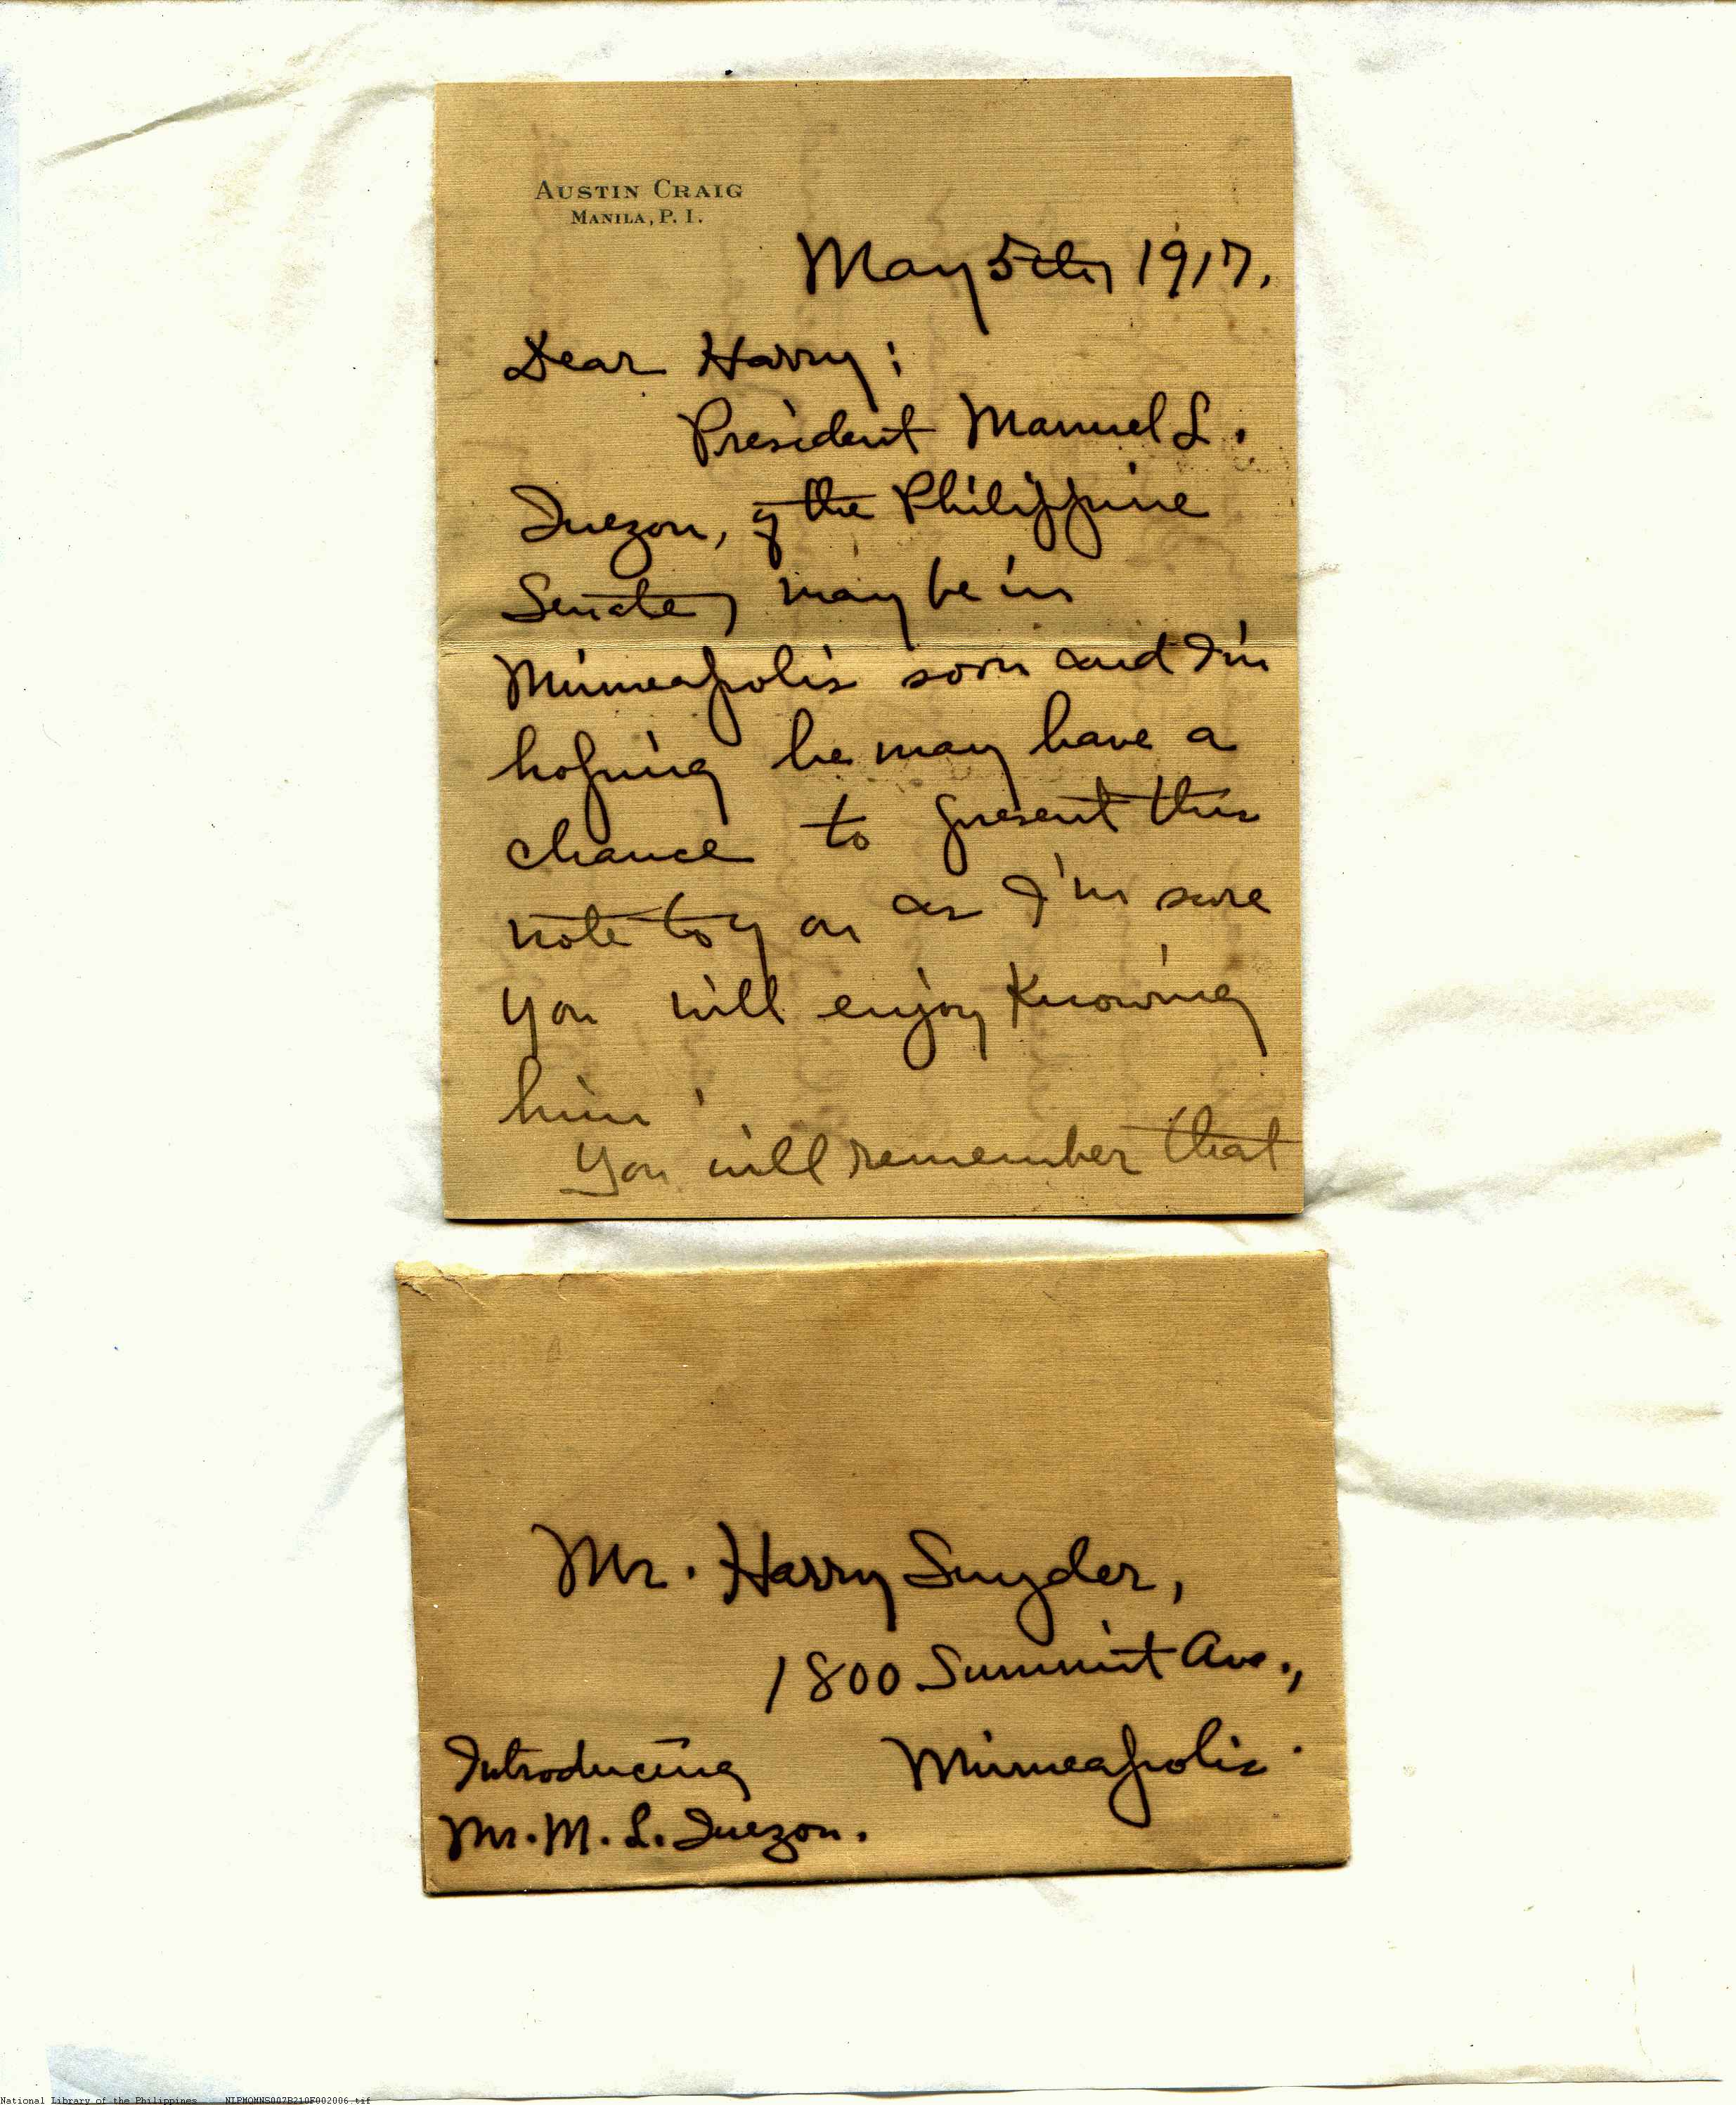 AUSTIN CRAIG
MANILA, P. I.
May 5th 1917.
Dear Harry:
President Manuel L.
Quezon, of the Philippine
Senate, may be in
Minneapolis soon and I'm
hoping he may have a
chance to present this
note to you as I'm sure
you will enjoy knowing
him.
You will remember that
Mr. Harry Snyder,
1800 Summit Ave.,
Minneapolis.
Introducing
Mr. M. L. Quezon.
National Library of the Philippines NLPMQMNS007B210F002006.tif